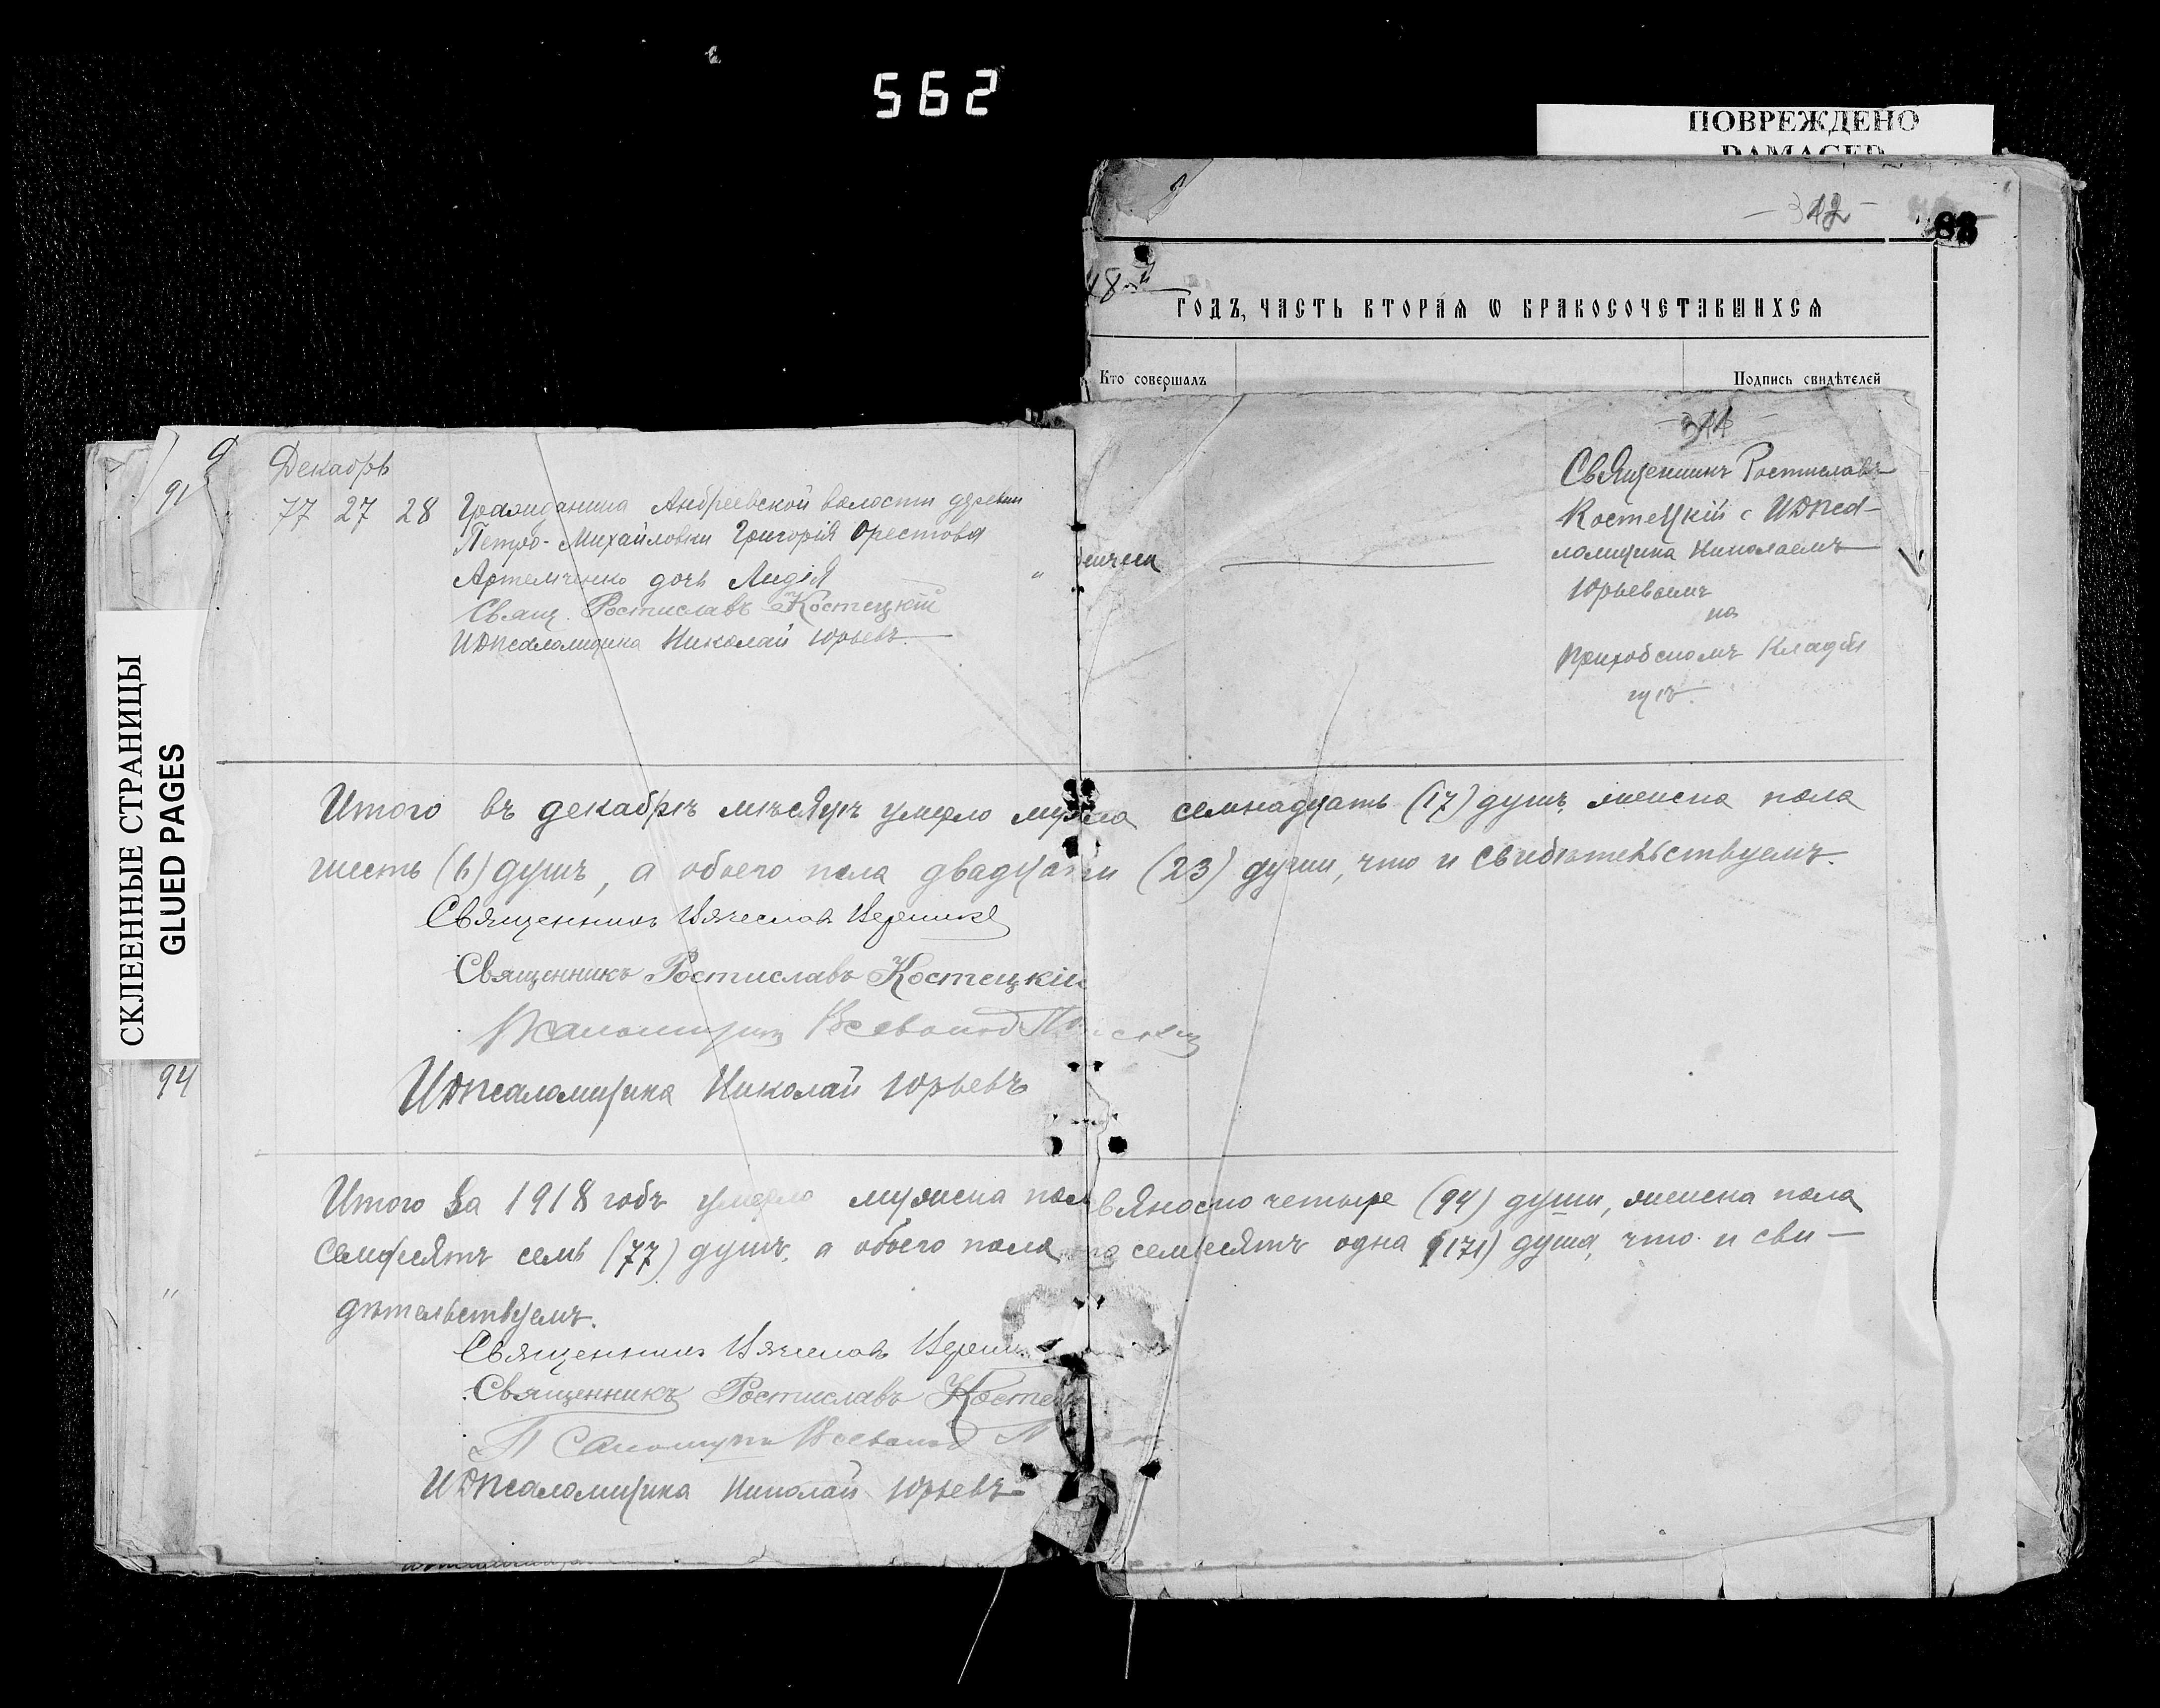 562
ПОВРЕЖДЕНО
DAMAGED
342
83
18
ГОДЪ, ЧАСТЬ ВТОРАѦ Ѡ БРАКОСОЧЕТАВШИХСѦ
Кто совершалъ
Подпись свидѣтелей
341
91
Декабрь
77 27 28 Гражданина Андреевской волости деревни
Петро-Михайловки Григорія Орестова
Артемченко дочь Лидія "
Свящ. Ростиславъ Костецкій
ИДпсаломщика Николай Юрьевъ
Священникъ Ростиславъ
Костецкій с ИДпса-
ломщика Николаемъ
Юрьевымъ
на
приходскомъ кладби
щѣ.
СКЛЕЕННЫЕ СТРАНИЦЫ
GLUED PAGES
94
"
Итого въ декабрѣ мѣсяцѣ умерло семнадцать (17) душъ, женска пола
шесть (6) душъ, а обоего пола (23) души, что и свидѣтельствуемъ.
Священникъ Вячеславъ
Священникъ Ростиславъ Костецкій
Псаломщикъ Всеволод
ИДпсаломщика Николай Юрьевъ
Итого за 1918 годъ умерло мужска пола девяносто четыре (94) души, женска пола
семдесятъ семь (77) душъ, а обоего пола сто семдесятъ одна (171) душа, что и сви-
дѣтельствуемъ.
Священникъ Вячеславъ
Священникъ Ростиславъ
Псаломщикъ Всеволод
ИДпсаломщика Николай Юрьевъ